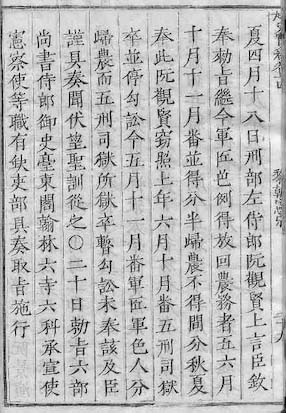 夏四月十八日刑部左侍郎阮觀賢上言臣欽
奉勑旨繼今軍匠色例得放回農務者五六月
十月十一月番並得分半歸農不得間分秋夏
奉此阮觀賢竊照上年六月十月番五刑司獄
卒並停勾訟今五月十一月番匠軍色人分
歸農而五刑司獄所獄卒暫勾訟未奉該及臣
謹具奏聞伏望聖訓從之〇二十日勅旨六部
尚書侍郎御史臺東閣翰林六寺六科承宣使
憲察使等職有缺吏部具奏取旨施行